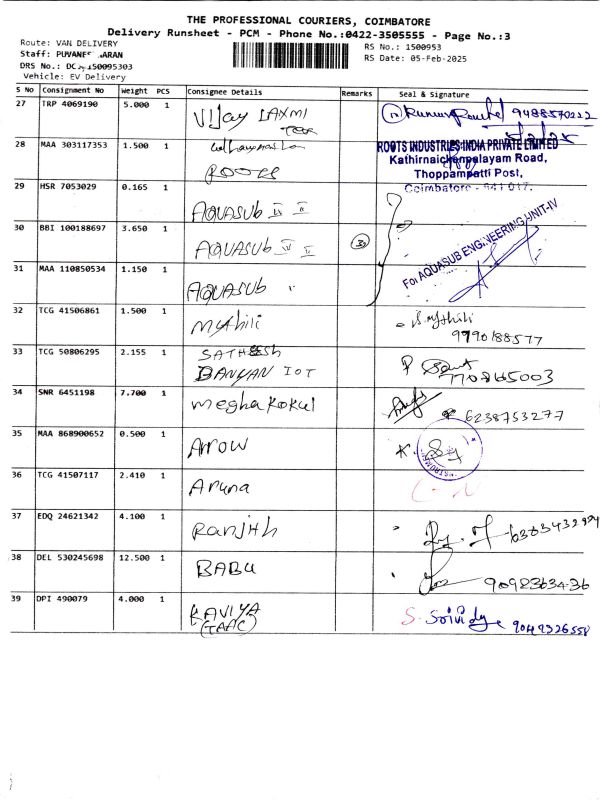 THE PROFESSIONAL COURIERS, COIMBATORE
Delivery Runsheet - PCM - Phone No.:0422-3505555 - Page No.:3
Route: VAN DELIVERY
Staff:
DRS No.:
Vehicle: EV Delivery
RS No.: 1500953
RS Date: 05-Feb-2025
S No Consignment No Weight PCS Consignee Details Remarks Seal & Signature
27 TRP 4069190 5.000 1 Vijay LAXMI 9488570222
28 MAA 303117353 1.500 1
ROOTS
ROOTS INDUSTRIES INDIA PRIVATE LIMITED
Kathirnaickenpalayam Road,
Thoppampatti Post,
Coimbatore - 641 017.
29 HSR 7053029 0.165 1 AQUASUB IV II
30 BBI 100188697 3.650 1 AQUASUB II II 3
For AQUASUB ENGINEERING UNIT-IV
31 MAA 110850534 1.150 1 AQUASUB "
32 TCG 41506861 1.500 1 Mythili
9790188577
33 TCG 50806295 2.155 1 SATHEESH
BANYAN IOT
34 SNR 6451198 7.700 1 Megha Kokul 6238753277
35 MAA 868900652 0.500 1 Arrow
36 TCG 41507117 2.410 1 Aruna
37 EDQ 24621342 4.100 1 Ranjith
38 DEL 530245698 12.500 1 BABU
39 DPI 490079 4.000 1 KAVIYA S. Srividya 9049326558
(TAAC)